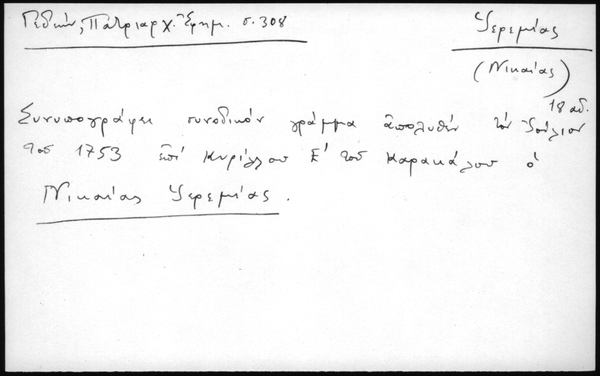 Γεδεών, Πατριαρχ. Ἐφημ. σ. 308
Ἱερεμίας
(Νικαίας)
18 αἰ.
Συνυπογράφει συνοδικὸν γράμμα ἀπολυθὲν τὸν Ἰούλιον
τοῦ 1753 ἐπὶ Κυρίλλου Ε' τοῦ Καρακάλου ὁ
Νικαίας Ἱερεμίας.